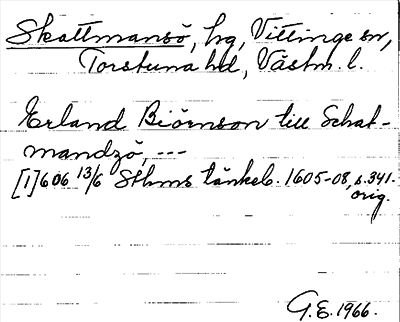 Skattmansö, hg, Vittinge sn,
Torstuna hd, Västm. l.
Erland Biörnson till Schat-
mandzö, ---
[1]606 13/6 Sthms tänkeb. 1605-08, s. 341.
orig.
G.E. 1966.